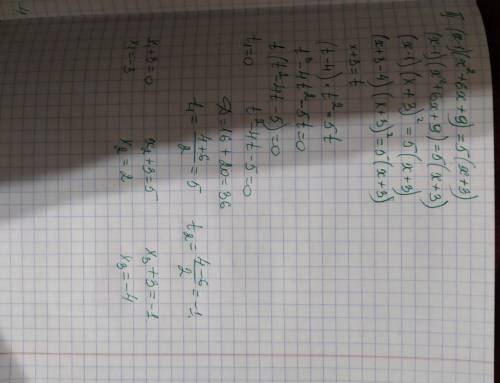 (x-1)(x²+6x+9)=5(x+3)
(x-1)(x²+6x+9)=5(x+3)
(x-1)(x+3)²=5(x+3)
(x+3-4)(x+3)²=5(x+3)
x+3=t
(t-4)·t²=5t
t³-4t²-5t=0
t(t²-4t-5)=0
t₁=0 t²-4t-5=0
D=16+20=36
t₁=4+6/2=5 t₂=4-6/2=-1
x₁+3=0 x₂+3=5 x₃+3=-1
x₁=-3 x₂=2 x₃=-4